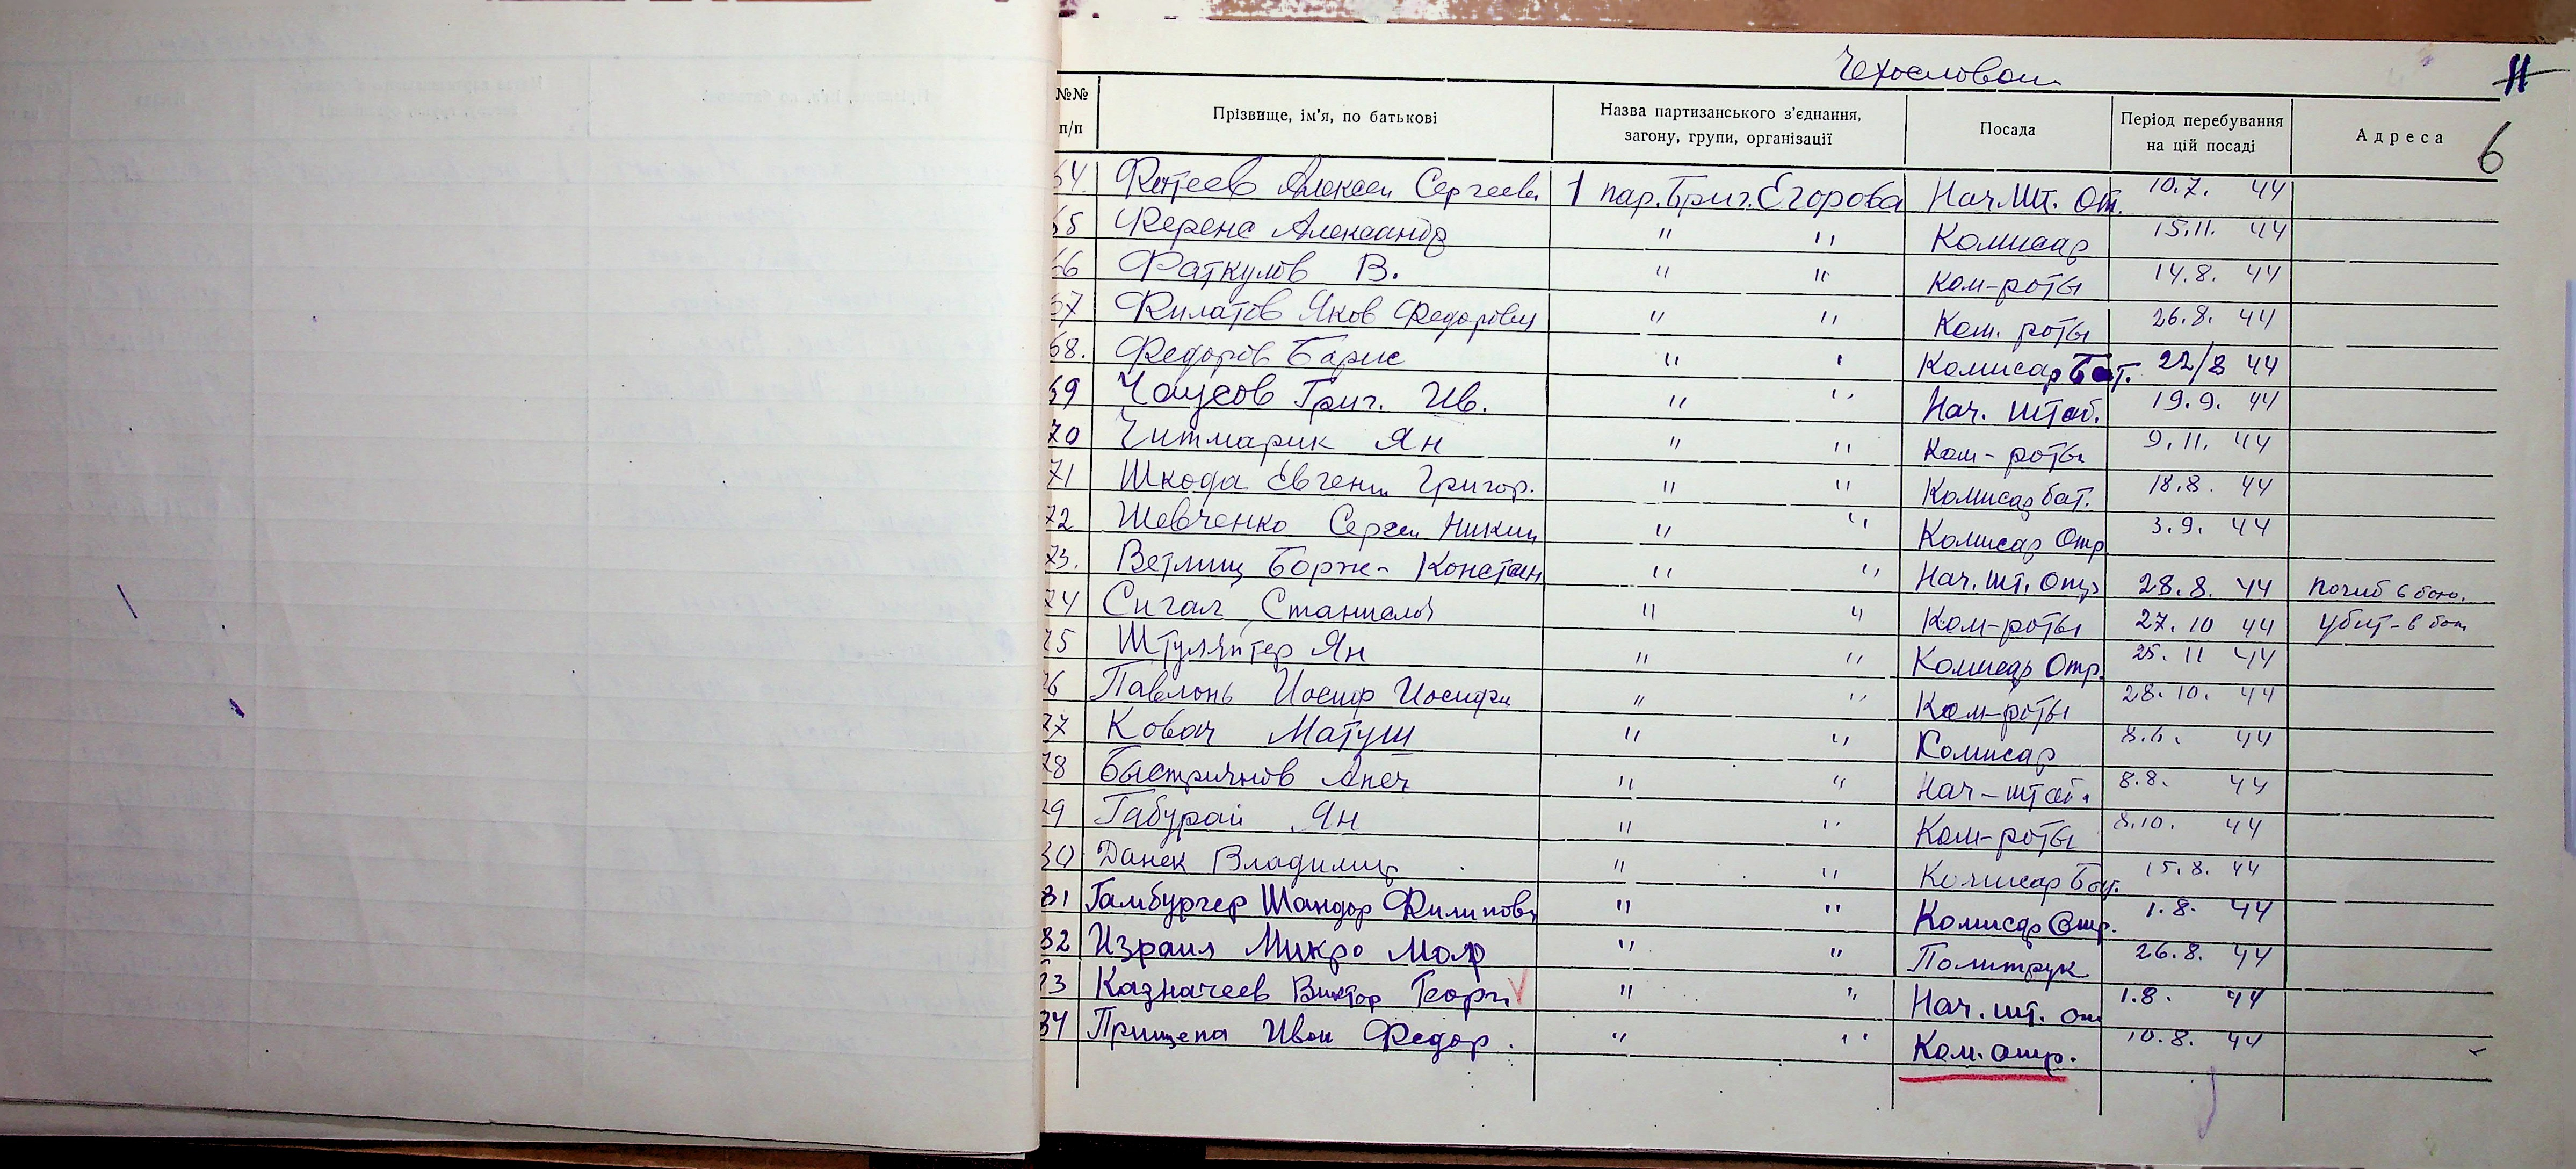 Чехословаки
11
№№ п/п Прізвище, ім'я, по батькові Назва партизанського з'єднання, загону, групи, організації Посада Період перебування на цій посаді Адреса 6
64. Фотеев Алексей Сергееви 1 пар. Бриг. Егорова Нач. шт. От. 10.7. 44
65 Ференс Александр " " Комисар 15.11. 44
66 Фаткулов В. " " Ком-роты 14.8. 44
67 Филатов Яков Федорович " " Ком. роты 26.8. 44
68. Федоров Барис " " Комисар Бат. 22/8 44
69 Чаусов Григ. Ив. " " Нач. штаб. 19.9. 44
70 Читмарик Ян " " Ком-роты 9.11. 44
71 Шкода Евгени Григор. " " Комисар бат. 18.8. 44
72 Шевченко Сергеи Никит " " Комисар Отр 3.9. 44
73. Ветлищ Борис Констан " " Нач. шт. отр 28.8. 44 погиб в бою.
74 Сигал Станислав " " Ком-роты 27.10 44 убит-в бою
75 Ян " " Комисар Отр. 25.11 44
76 Павлонь Иосиф Иосифи " " Ком-роты 28.10. 44
77 Ковач Матуш " " Комисар 8.6. 44
78 Быстричнов " " Нач-штаб. 8.8. 44
79 Габурай Ян " " Ком-роты 8.10. 44
80 Данек Владимир " " Комисар Бат. 15.8. 44
81 Гамбургер Шандор Филипов " " Комисар Отр. 1.8. 44
82 Израил Микро Мор " " Политрук 26.8. 44
83 Казначеев Виктор Георги " " Нач. шт. от 1.8. 44
84 Прищепа Иван Федор. " " Ком. отр. 10.8. 44